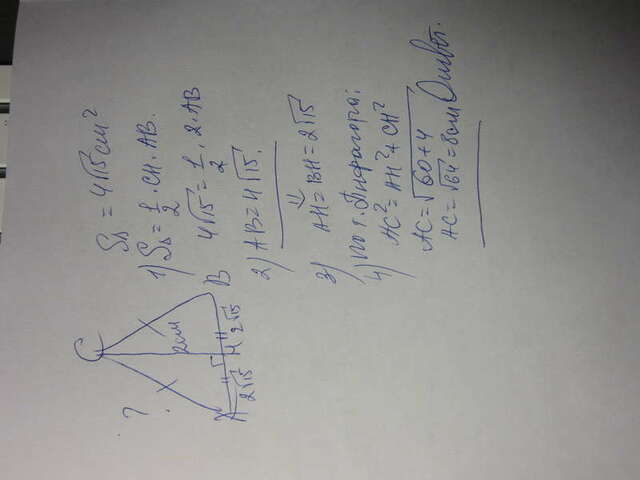 C
?
2см
A H B
2√15 2√15
S△ = 4√15 см²
1) S△ = 1/2 · CH · AB.
4√15 = 1/2 · 2 · AB
2) AB = 4√15.
3) AH = BH = 2√15
4) по т. Пифагора:
AC² = AH² + CH²
AC = √60+4
AC = √64 = 8см Ответ.